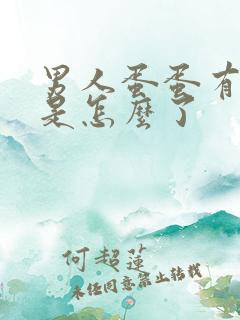 男人蛋蛋有
是怎麼了
何超蓮
未经同意禁止转载